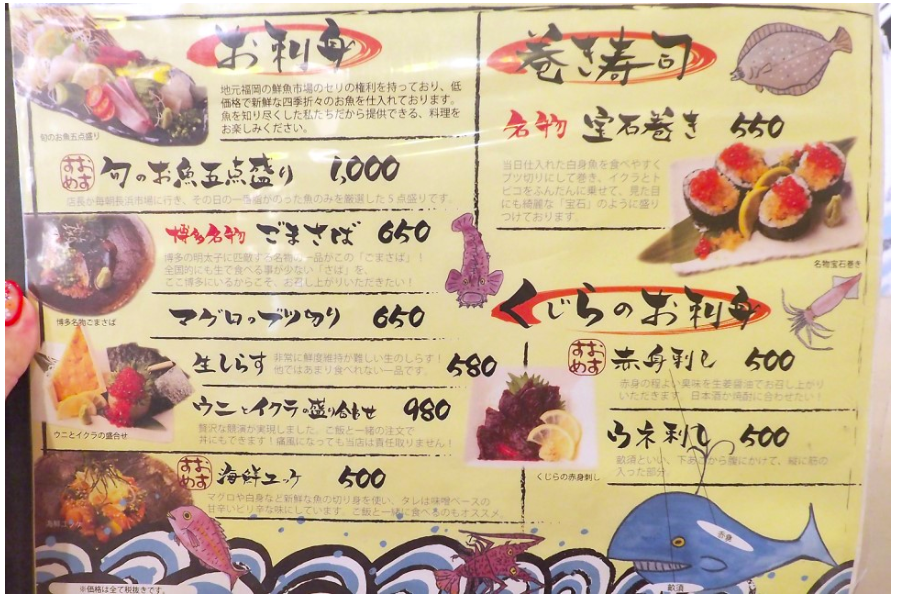 お刺身
地元福岡の鮮魚市場のセリの権利を持っており、低
価格で新鮮な四季折々のお魚を仕入れております。
魚を知り尽くした私たちだから提供できる、料理を
お楽しみください。
旬のお魚五点盛り
おすすめ 旬のお魚五点盛り 1,000
店長が毎朝長浜市場に行き、その日の一番脂がのった魚のみを厳選した5点盛りです。
博多名物 ごまさば 650
博多の明太子に匹敵する名物の一品がこの「ごまさば」!
全国的にも生で食べる事が少ない「さば」を、
ここ博多にいるからこそ、お召し上がりいただきたい!
博多名物ごまさば
マグロのブツ切り 650
生しらす 580
非常に鮮度維持が難しい生のしらす!
他ではあまり食べれない一品です。
ウニとイクラの盛り合わせ 980
贅沢な競演が実現しました。ご飯と一緒の注文で
丼にもできます!痛風になっても当店は責任取りません!
ウニとイクラの盛合せ
おすすめ 海鮮ユッケ 500
マグロや白身など新鮮な魚の切り身を使い、タレは味噌ベースの
甘辛いピリ辛な味にしています。ご飯と一緒に食べるのもオススメ。
海鮮ユッケ
※価格は全て税抜きです。
巻き寿司
名物 宝石巻き 550
当日仕入れた白身魚を食べやすく
ブツ切りにして巻き、イクラとト
ビコをふんだんに乗せて、見た目
にも綺麗な「宝石」のように盛り
つけております。
名物宝石巻き
くじらのお刺身
おすすめ 赤身刺し 500
赤身の程よい臭味を生姜醤油でお召し上がり
いただきます。日本酒か焼酎に合わせたい!
ウネ刺し 500
畝須といい、下あごから腹にかけて、縦に筋の
入った部分
くじらの赤身刺し
赤身
畝須